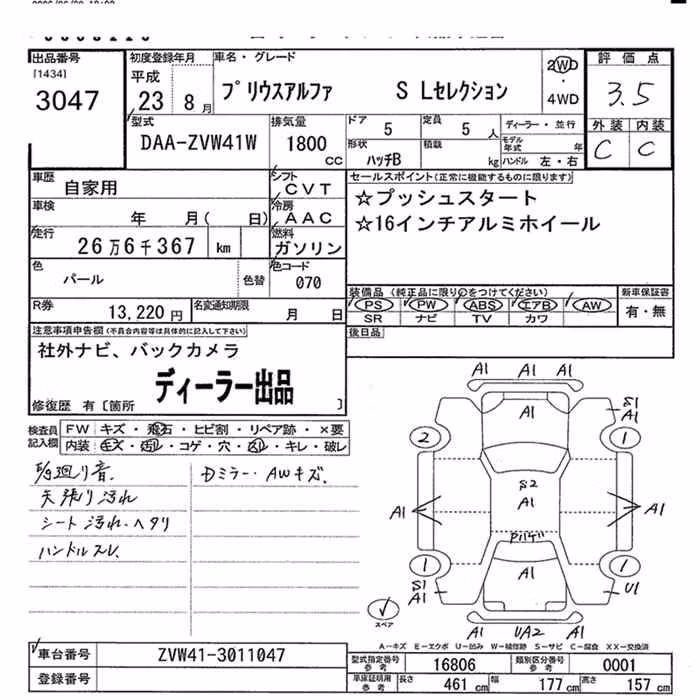 出品番号
[1434]
3047
初度登録年月
平成
23 8月
車名・グレード
プリウスアルファ S Lセレクション
2WD
4WD
評価点
3.5
外装 内装
C C
型式
DAA-ZVW41W
排気量
1800
cc
ドア
5
定員
5 人
形状
ハッチB
積載
kg
ディーラー・並行
モデル年式 年
ハンドル 左・右
車歴
自家用
シフト
CVT
車検
年 月( 日)
冷房
AAC
走行
26万6千367 km
燃料
ガソリン
色
パール
色替
色コード
070
R券
13,220円
名変通知期限
月 日
セールスポイント(正常に機能するものに限ります)
☆プッシュスタート
☆16インチアルミホイール
装備品(純正品に限り○をつけてください)
PS PW ABS エアB AW
SR ナビ TV カワ
新車保証書
有・無
後日品
注意事項申告欄(不具合内容等は具体的に記入して下さい)
社外ナビ、バックカメラ
ディーラー出品
修復歴 有[箇所 ]
検査員記入欄
FW キズ・飛石・ヒビ割・リペア跡・×要
内装:キズ・汚レ・コゲ・穴・スレ・キレ・破レ
廻り音.
天張り汚れ
シート汚れ.ヘタリ
ハンドルスレ.
Dミラー.AWキズ.
A1 A1 A1
S1
A1
A1
2
1
S2
A1
A1
A1
1
1
A1
S1
A1
U1
A1 UA2 A1
スペア
A-キズ E-エクボ U-凹み W-補修跡 S-サビ C-腐食 XX-交換済
車台番号
ZVW41-3011047
登録番号
型式指定番号
参考
16806
類別区分番号
参考
0001
車庫証明用
参考
長さ 461cm 幅 177cm 高さ 157cm